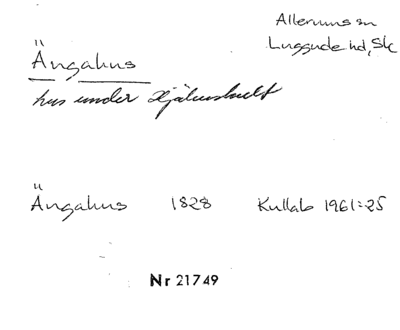 Allerums sn
Luggude hd, Sk
Ängahus
hus under Hjälmshult
Ängahus 1828 Kullab 1961:25
Nr 21749